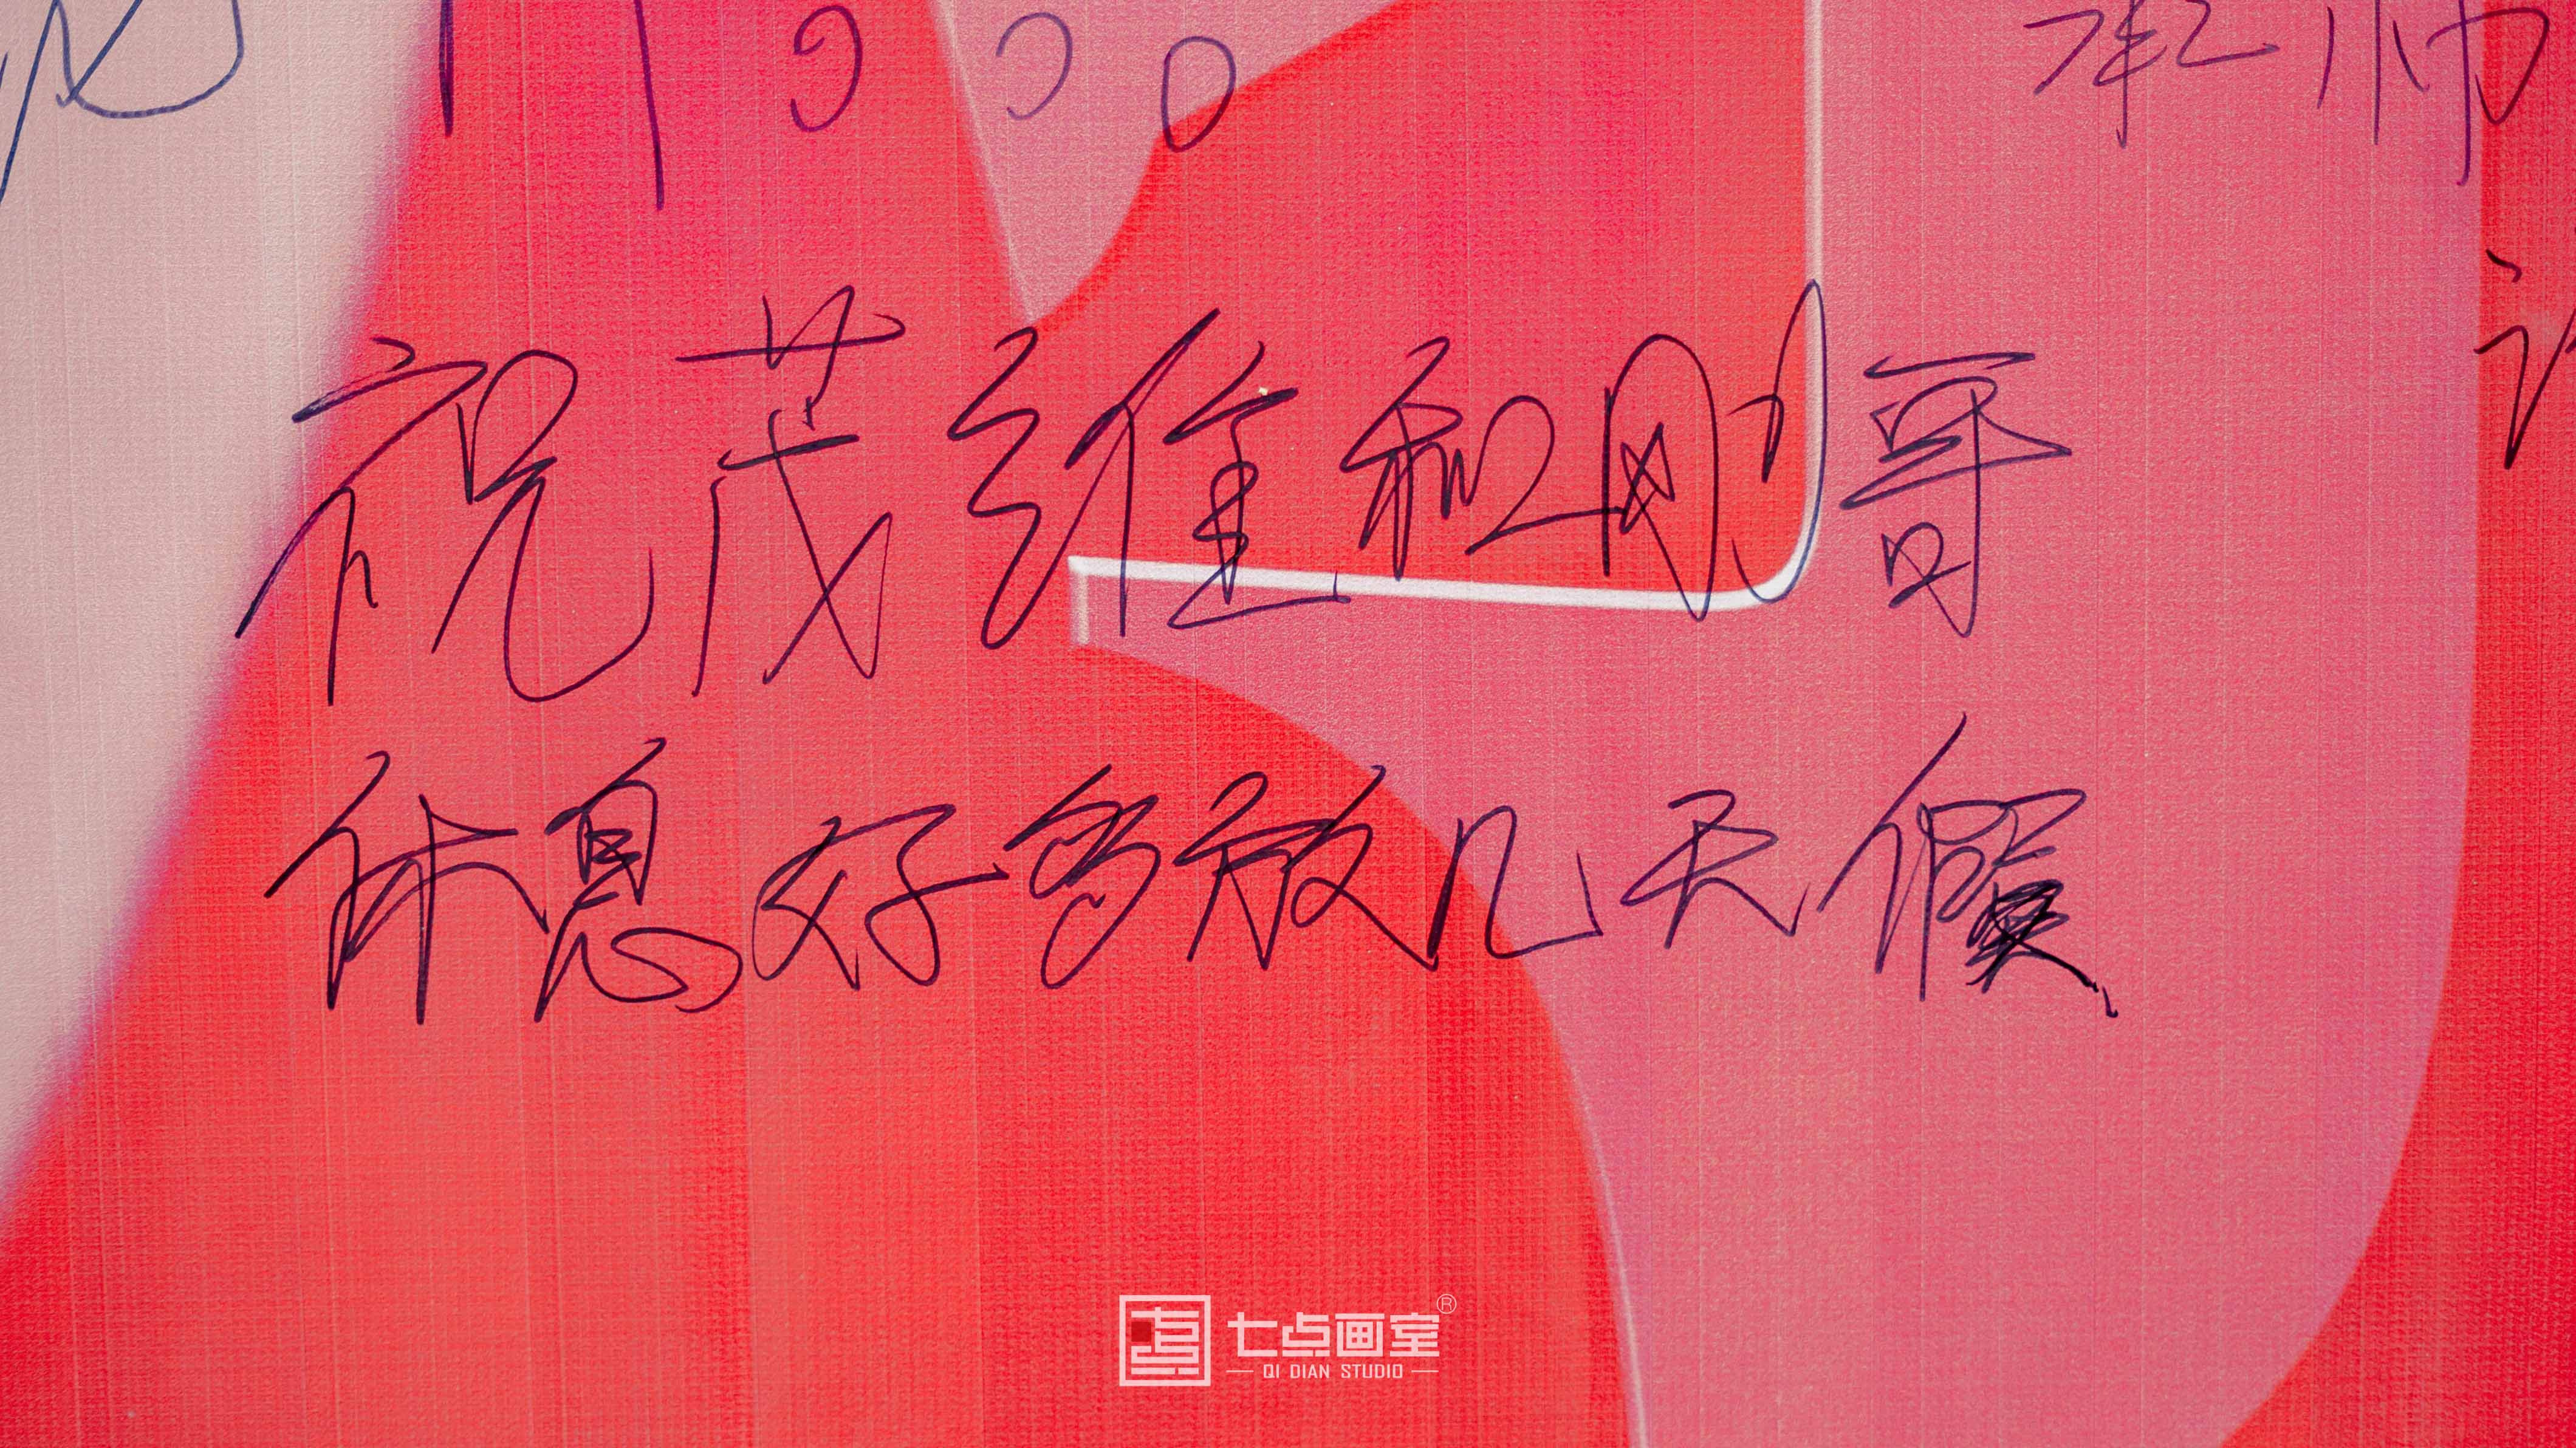 祝茂維和刚哥
休息好多放几天假
七点画室®
QI DIAN STUDIO